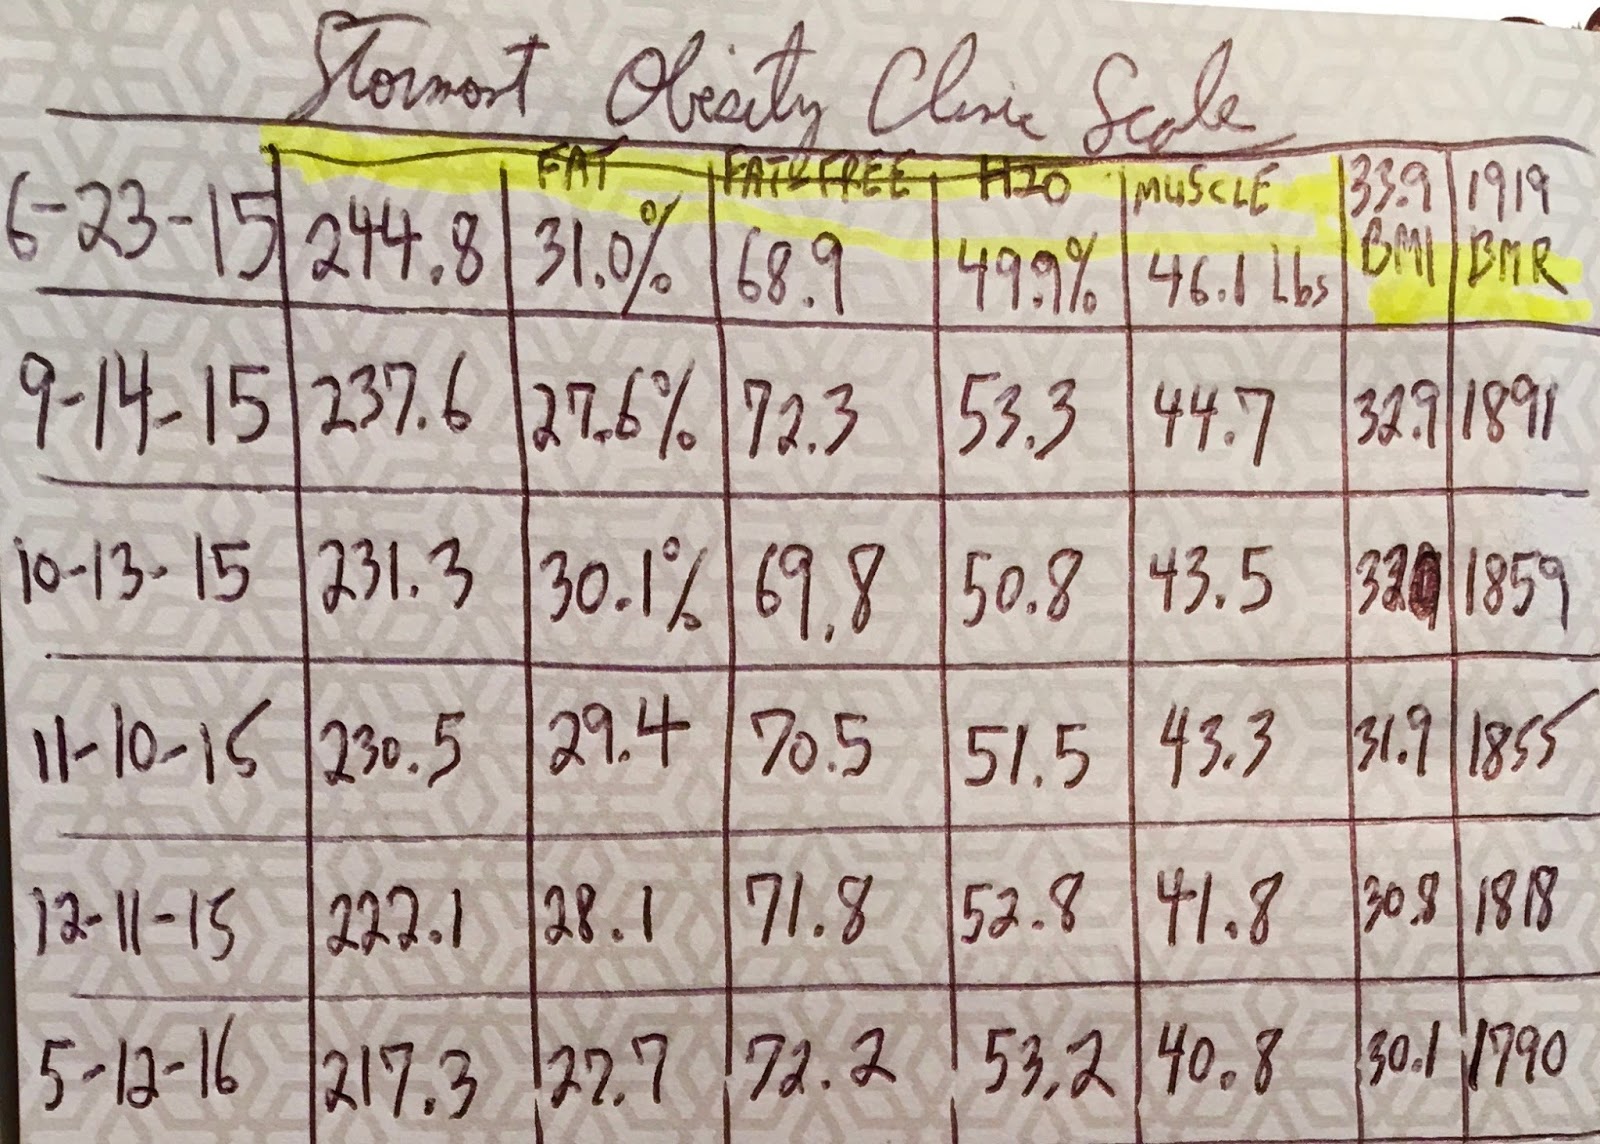 Stormont Obesity Clinic Scale
FAT FAT FREE H2O MUSCLE 33.9 1919
6-23-15 244.8 31.0% 68.9 49.9% 46.1 Lbs BMI BMR
9-14-15 237.6 27.6% 72.3 53.3 44.7 32.9 1891
10-13-15 231.3 30.1% 69.8 50.8 43.5 1859
11-10-15 230.5 29.4 70.5 51.5 43.3 31.9 1855
12-11-15 222.1 28.1 71.8 52.8 41.8 30.8 1818
5-12-16 217.3 27.7 72.2 53.2 40.8 30.1 1790